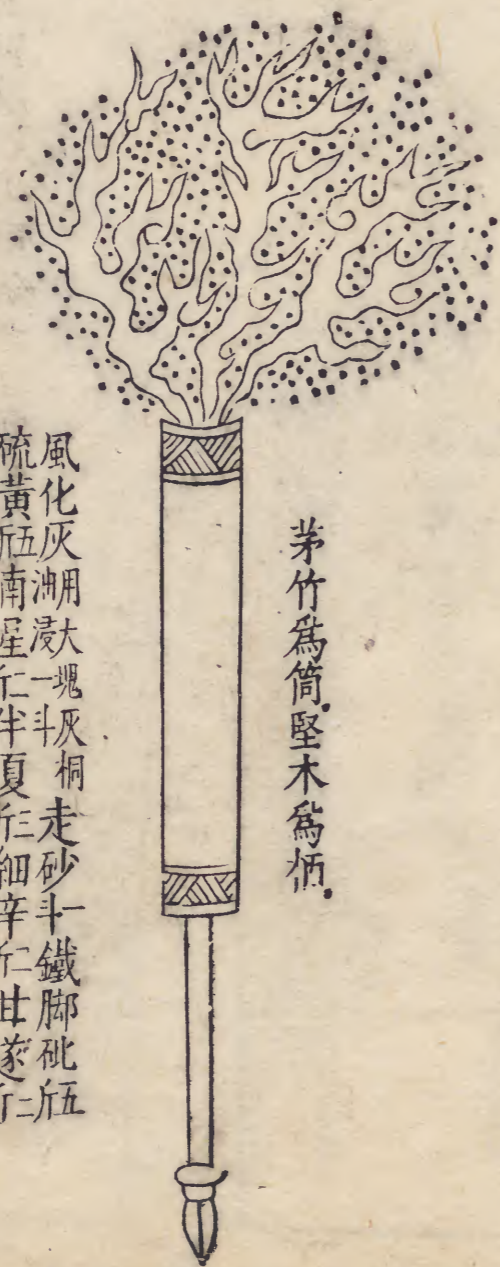 茅竹爲筒堅木爲柄
風化灰用大塊灰桐油浸一斗走砂一斗鐵脚砒五斤
硫黃五斤南星二斤半夏三斤細辛二斤甘遂二斤